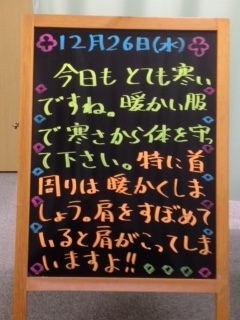 12月26日(水)
今日も とても寒い
ですね。暖かい服
で寒さから体を守っ
て下さい。特に首
周りは 暖かくしま
しょう。肩をすぼめて
いると肩がこってしま
いますよ!!